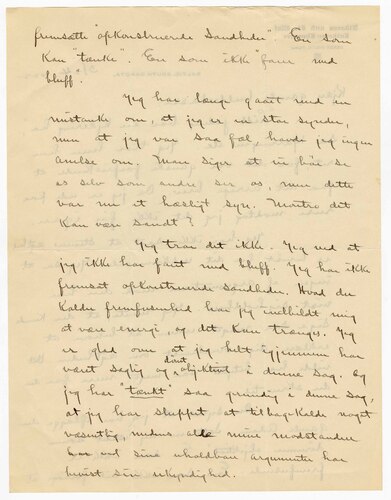 fremsætte "opkonstruerede Sandheder". En som
kan "tænke". En som ikke "farer med
bluff".
Jeg har længe gaaet rund en
mistanke om, at jeg er en stor synder,
men at jeg var saa fæl, havde jeg ingen
anelse om. Man siger at vi bør se
os selv som andre ser os, men dette
var mig et hæsligt syn. Montro det
kan være sandt?
Jeg tror det ikke. Jeg ved at
jeg ikke har faret med bluff. Jeg har ikke
fremsat opkonstruerede sandheder. Hvad du
kalder fremfusenhed har jeg indbildt mig
at være energi, og det kan trænges. Jeg
er glad om at jeg helt igjennem har
været saglig og objektent i denne sag. Og
jeg har "tænkt" saa grundig i denne sag,
at jeg har sluppet at tilbagekalde noget
væsentlig, medens alle mine modstandere
har ved sine uholdbare argumenter har
hvist sin ukyndighed.